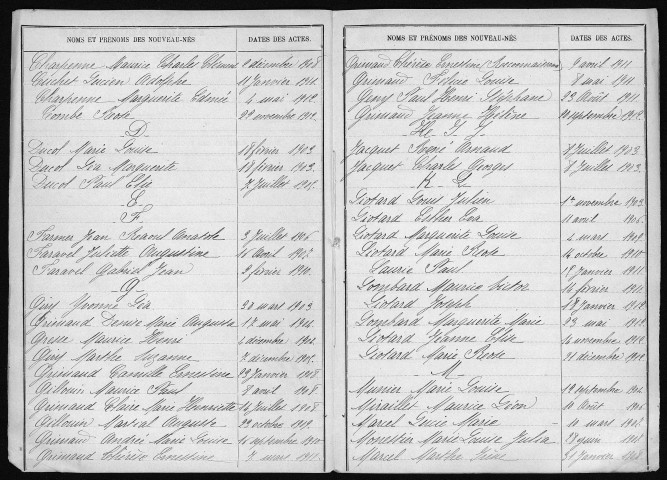 NOMS ET PRÉNOMS DES NOUVEAU-NÉS DATES DES ACTES.
Charpenne Maurice Charles Clément 9 décembre 1908
Cuchet Lucien Adolphe 11 Janvier 1911.
Charpenne Marguerite Edmée 4 mai 1912.
Combe Paole 22 novembre 1912.
D
Ducol Marie Louise 18 février 1903
Ducol Léa Marguerite 18 février 1903.
Ducol Paul Elie Juillet
E
F
Farmer Jean Raoul 3 Juillet 1906
Faravel Juliette Augustine 16 Avril 1907.
Faravel Gabriel Jean 9 février 1910.
G
Guy Yvonne Léa 20 mars 1903
Grimaud Denise Marie Augusta 17 mai 1904.
Gresse Maurice Henri 4 décembre 1904
Guy Marthe Suzanne 7 décembre
Grimaud Camille Ernestine 29 Janvier 1908
Gillouin Maurice Paul 8 avril 1908.
Grimaud Claire Marie Henriette Juillet 1908
Gillouin Martial Auguste 22 octobre
Grimaud André Marie Louise 16 septembre 1910
Grimaud Thérèse Ernestine 7 mars 1911.
NOMS ET PRÉNOMS DES NOUVEAU-NÉS DATES DES ACTES.
Grimaud Thérèse Ernestine 9 avril 1911.
Grimaud Hélène Louise 8 mai 1911.
Giry Paul Henri Stéphane 23 Août 1911.
Grimaud Jeanne Hélène septembre 1912.
H I J
Jacquet André Armand 8 Juillet 1903.
Jacquet Charles Georges 8 Juillet 1903.
K L
Liotard Louis Julien 1er novembre 1903
Liotard Esther Eva 11 avril 1906.
Liotard Marguerite Louise 4 mars 1909.
Liotard Marie Rose 14 octobre 1910
Laurie Paul 17 Janvier 1911
Lombard Maurice Victor 16 février 1911.
Liotard Joseph 28 Janvier 1912
Lombard Marguerite Marie 23 mai 1912
Liotard Jeanne Elise 14 novembre 1912.
Liotard Marie Rose 21 décembre 1912.
M
Murier Marie Louise septembre 1904
Miraillet Maurice Léon Août 1906
Marcel Marie 11 mars 1907.
Monestier Marie Louise Julia juin
Marcel Marthe 31 Janvier 1908